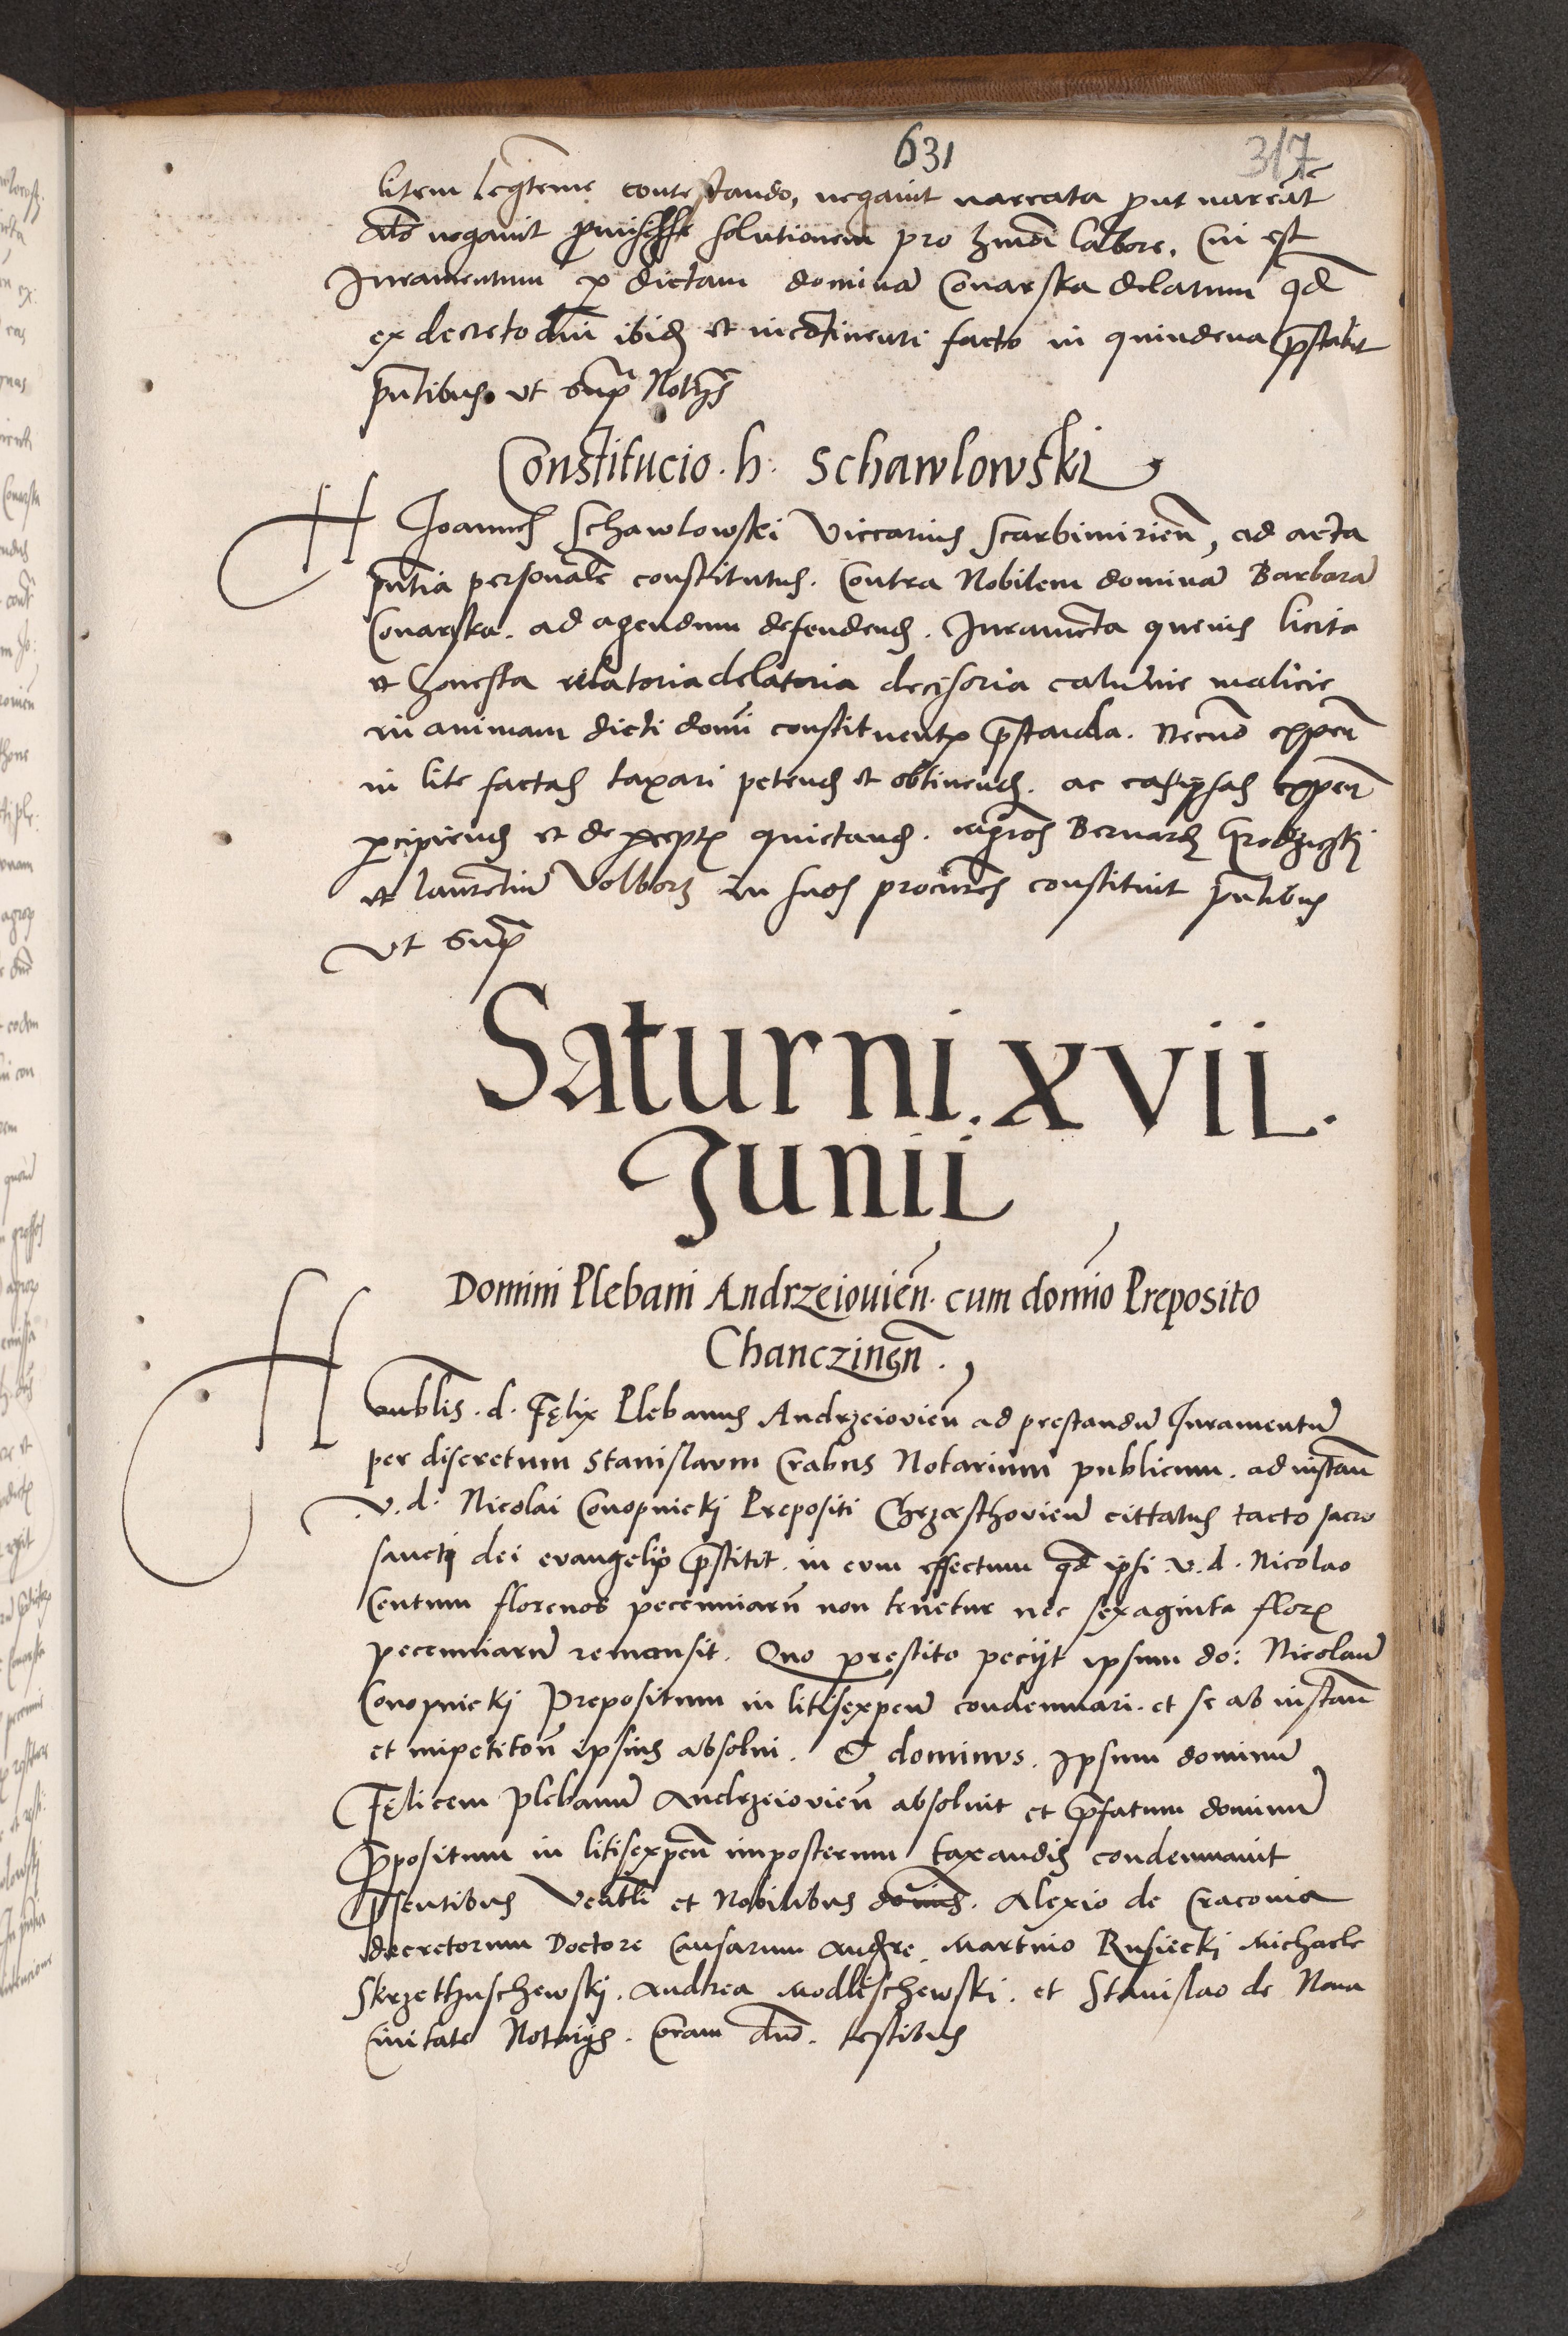 631
317
litem legitime contestando, negavit narrata prout narrantur
Ac negavit promisisse solutionem pro labore. Cui est
Iuramentum per dictam dominam Conarska delatum quod
ex decreto domini ibidem et incontinenti facto in quindena prestabit
pntibus ut supra Notariis
Constitucio. h. Schawlowski
H Ioannes Schawlowski Viccarius Scarbimirien, ad acta
pntia personaliter constitutus. Contra Nobilem dominam Barbaram
Conarska. ad agendum defendendum. Iuramenta quevis licita
et honesta relatoria delatoria decisoria calumnie malicie
in animam dicti domini constituentis prestanda. Necnon expen
in lite factas taxari petendum et obtinendum. ac eas ipsas expen
percipiendum et de perceptis quietandum. magros Bernardum Grodziczki
et Laurentium Volborz in suos procuratores constituit pntibus
Ut supra
Saturni. XVII.
Junii
Domini Plebani Andrzeiouien. cum domino Preposito
Chanczinen.
Honorablis. d. Felix Plebanus Andrzeiovien ad prestandum Iuramentum
per discretum Stanislaum Crabus Notarium publicum. ad instan
V. d. Nicolai Conopnickj Prepositi Chrzesthovien cittatus tacto sacro
sancto dei evangelio prestitit. in eum effectum quod ipsi. v. d. Nicolao
Centum florenos pecunniarum non tenetur nec sexaginta flor
pecunniarum remansit. Quo prestito peciit ipsum do: Nicolaum
Conopnickj Prepositum in litisexpen condemnari. et se ab instan
et impetiton ipsius absolvi. Et dominus. Ipsum dominum
Felicem Plebanum Andrzeiovien absoluit et prefatum dominum
Prepositum in litisexpen imposterum taxandis condemnauit
Presentibus Venbli et Nobilibus dominis. Alexio de Cracovia
decretorum Doctore Causarum Martino Rusieckj Michaele
Skrzethuschewskj. Andrea Modlischewski. et Stanislao de Nova
Civitate Notariis. Coram testibus